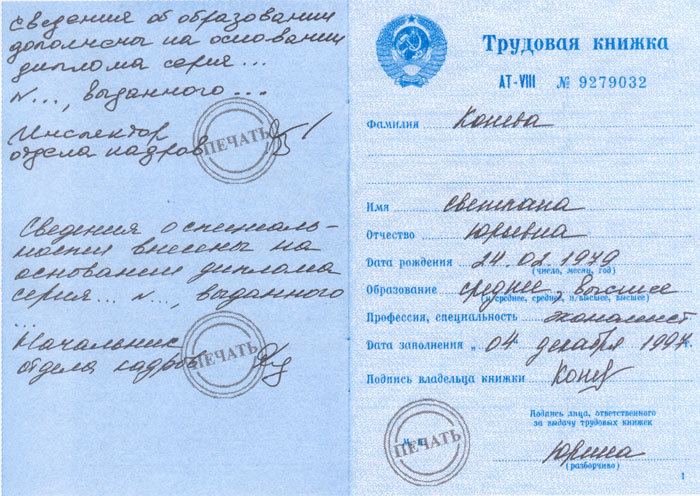 Сведения об образовании
дополнены на основании
диплома серия ...
N..., выданного ...
Инспектор
отдела кадров
ПЕЧАТЬ
Сведения о специаль-
ности внесены на
основании диплома
серия... N..., выданного
...
Начальник
отдела кадров
ПЕЧАТЬ
Трудовая книжка
АТ-VIII № 9279032
Фамилия Конева
Имя Светлана
Отчество Юрьевна
Дата рождения 24.02.1979
(число, месяц, год)
Образование среднее, высшее
(н/среднее, среднее, н/высшее, высшее)
Профессия, специальность экономист
Дата заполнения „04" декабря 1997г.
Подпись владельца книжки Конев
Подпись лица, ответственного
за выдачу трудовых книжек
М.П.
ПЕЧАТЬ
Юрина
(разборчиво)
1